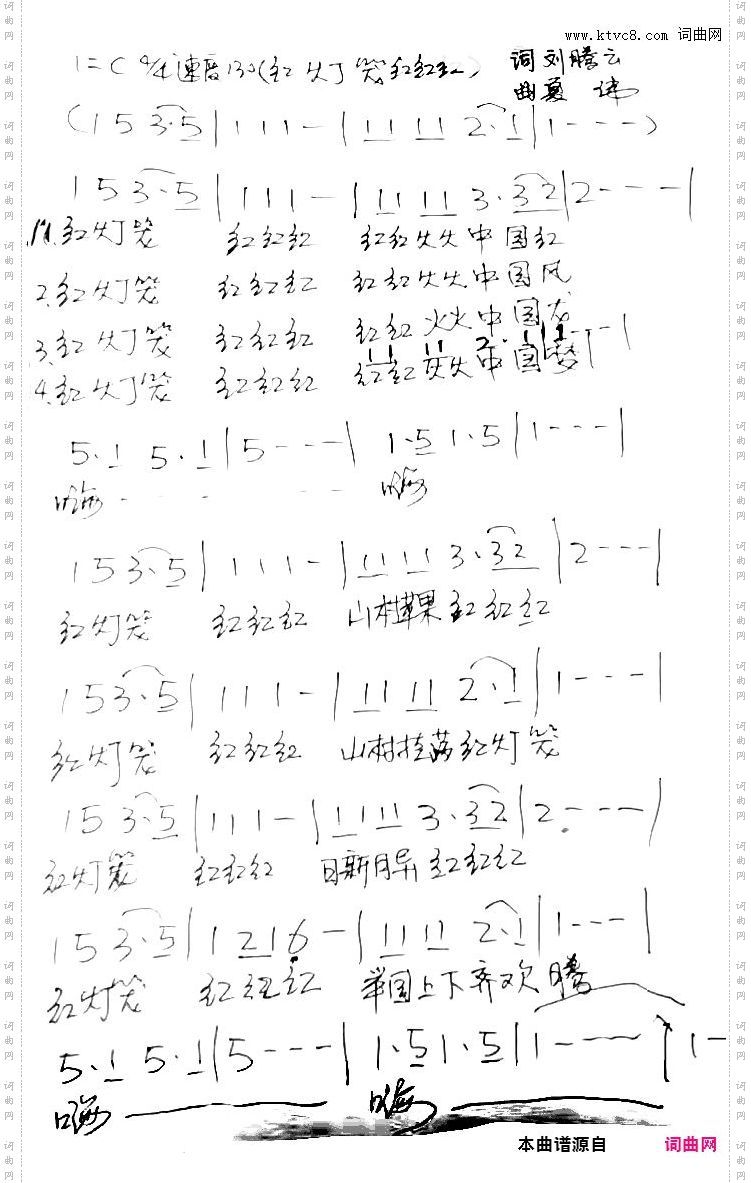 www.ktvc8.com 词曲网
1=C 4/4 速度130(红灯笼红红红) 词刘腾云
曲夏伟
(1 5 3·5|1 1 1 -|11 11 2·1|1 - - -)
1 5 3·5|1 1 1 -|11 11 3·32|2 - - -|
1.红灯笼 红红红 红红火火中国红
2.红灯笼 红红红 红红火火中国风
3.红灯笼 红红红 红红火火中国龙
11 11 2·1|1 - - -|
4.红灯笼 红红红 红红火火中国梦
5·1 5·1|5 - - -| 1·5 1·5|1 - - -|
嗨 - - - - - - 嗨
1 5 3·5|1 1 1 -|11 11 3·32|2 - - -|
红灯笼 红红红 山村苹果红红红
1 5 3·5|1 1 1 -|11 11 2·1|1 - - -|
红灯笼 红红红 山村挂满红灯笼
1 5 3·5|1 1 1 -|11 11 3·32|2 - - -|
红灯笼 红红红 日新月异红红红
1 5 3·5|1 2 1 6 -|11 11 2·1|1 - - -|
红灯笼 红红红 举国上下齐欢腾
5·1 5·1|5 - - -| 1·5 1·5|1 - - - 1 -
嗨 嗨
本曲谱源自 词曲网